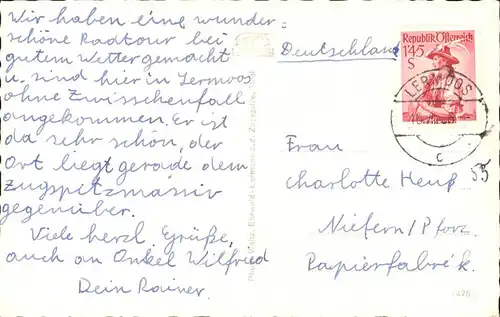 Wir haben eine wunder-
schöne Radtour bei
gutem Wetter gemacht
u. sind hier in Lermoos
ohne Zwisschenfall
angekommen. Er ist
da sehr schön, der
Ort liegt gerade dem
Zugspitzmassiv
gegenüber.
Viele herzl Grüße,
auch an Onkel Wilfried
Dein Rainer.
Deutschland
Republik Österreich
1.45
S
LERMOOS
c
Frau
Charlotte Heuß
Niefern/Pforz.
Papierfabrik.
53